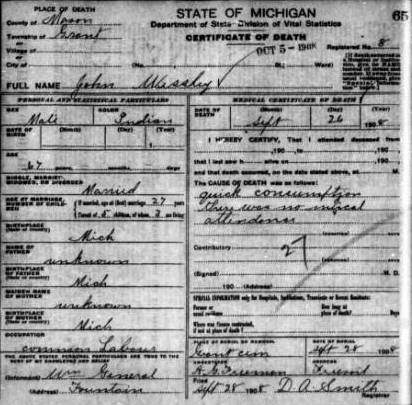 PLACE OF DEATH
STATE OF MICHIGAN
65
County of Mason
Department of State—Division of Vital Statistics
Township of Grant
CERTIFICATE OF DEATH
Village of
OCT 5 - 1908
Registered No. 8
City of (No. St.; Ward)
FULL NAME John Wessley
PERSONAL AND STATISTICAL PARTICULARS
MEDICAL CERTIFICATE OF DEATH
SEX Male COLOR Indian
DATE OF DEATH Sept 26 1908
(Month) (Day) (Year)
DATE OF BIRTH
(Month) (Day) (Year)
I HEREBY CERTIFY, That I attended deceased from
190 , to 190
AGE
67
that I last saw h alive on 190
and that death occurred, on the date stated above, at M.
SINGLE, MARRIED, WIDOWED, OR DIVORCED
Married
The CAUSE OF DEATH was as follows:
quick consumption
there was no
attendenss
AGE AT MARRIAGE
(If married, age at (first) marriage 27 years
Parent of 5 children, of whom 3 are living)
BIRTHPLACE
Mich
Contributory
27
NAME OF FATHER
unknown
BIRTHPLACE OF FATHER
Mich
(Signed) M. D.
190 (Address)
MAIDEN NAME OF MOTHER
unknown
SPECIAL INFORMATION only for Hospitals, Institutions, Transients or Recent Residents:
BIRTHPLACE OF MOTHER
Mich
Former or usual residence
How long at place of death? Days
Where was disease contracted, if not at place of death?
OCCUPATION
common Labour
PLACE OF BURIAL OR REMOVAL
DATE OF BURIAL
Sept 28 1908
THE ABOVE STATED PERSONAL PARTICULARS ARE TRUE TO THE BEST OF MY KNOWLEDGE AND BELIEF
UNDERTAKER
Freeman
(Informant) Wm General
Fountain
Filed Sept 28 1908 D. A. Smith
Registrar